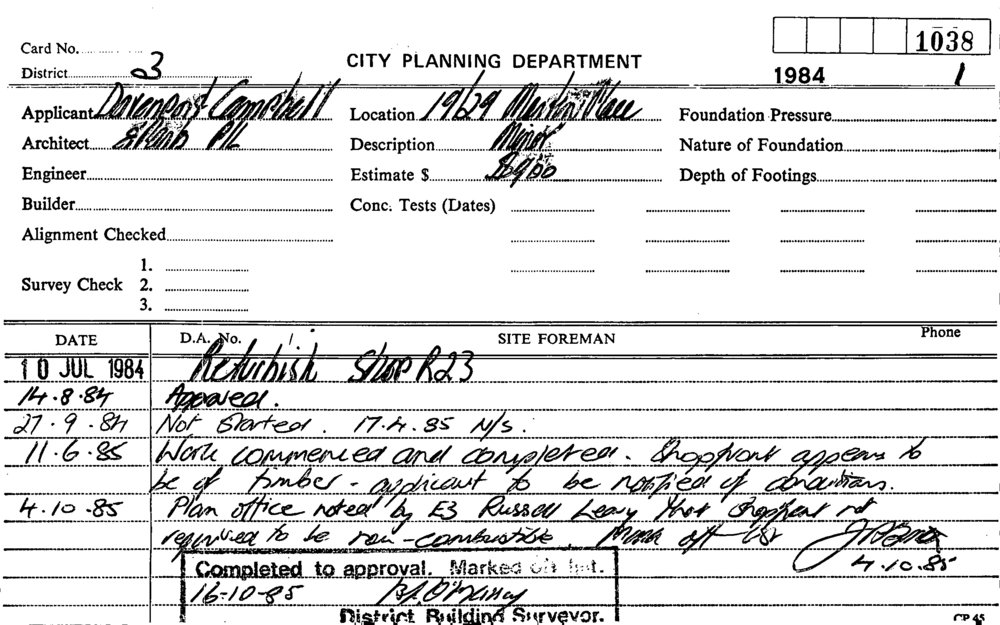 1038
Card No.
CITY PLANNING DEPARTMENT
District 3
1984 1
Applicant Davenport Campbell
Location 19/29 Martin Place
Foundation Pressure
Architect & Ptnrs P/L
Description Minor
Nature of Foundation
Engineer
Estimate $ $9,000
Depth of Footings
Builder
Conc. Tests (Dates)
Alignment Checked
1.
Survey Check 2.
3.
DATE D.A. No. SITE FOREMAN Phone
10 JUL 1984 Refurbish Shop R23
14.8.84 Approved.
27.9.84 Not Started. 17.4.85 N/S.
11.6.85 Work commenced and completed. Shopfront appears to
be of timber - applicant to be notified of conditions.
4.10.85 Plan office noted by E3 Russell Leavy that shopfront not
required to be non-combustible. Mark off list
4.10.85
Completed to approval. Marked off list.
16-10-85
District Building Surveyor.
CP 45